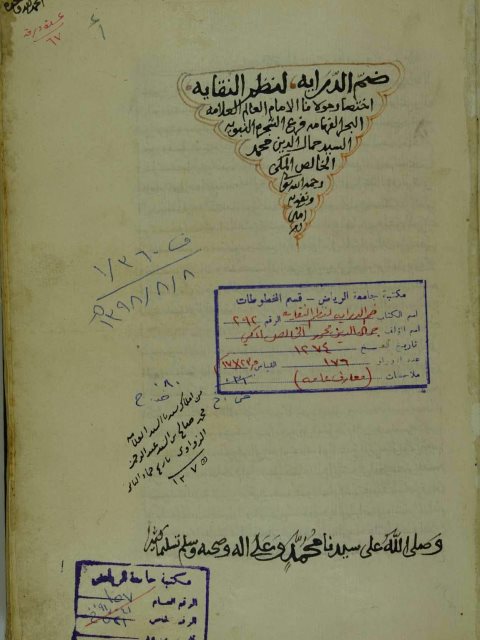 ضم الدرايه لنظم النقايه
اختصار مولانا الامام العالم العلامه
البحر الفهامه فرع الشجرة النبويه
السيد جمال الدين محمد
الخالص المكي
رحمه الله تعالى
ونفع به
امين
١/٣٦٠ ف
١٣٩٨/٨/٨ هـ
مكتبة جامعة الرياض - قسم المخطوطات
اسم الكتاب ضم الدرايه لنظم النقايه الرقم ٢٩٢
اسم المؤلف جمال الدين محمد الخالص المكي
تاريخ النسخ ١٢٧٤
عدد الاوراق ١٧٦ القياس
ملاحظات (معارف عامه)
محمد صالح بن السيد عبد الرحمن
الزواوي
وصلى الله على سيدنا محمد وعلى اله وصحبه وسلم تسليما كثيرا
مكتبة جامعة الرياض
الرقم العام
الرقم الخاص